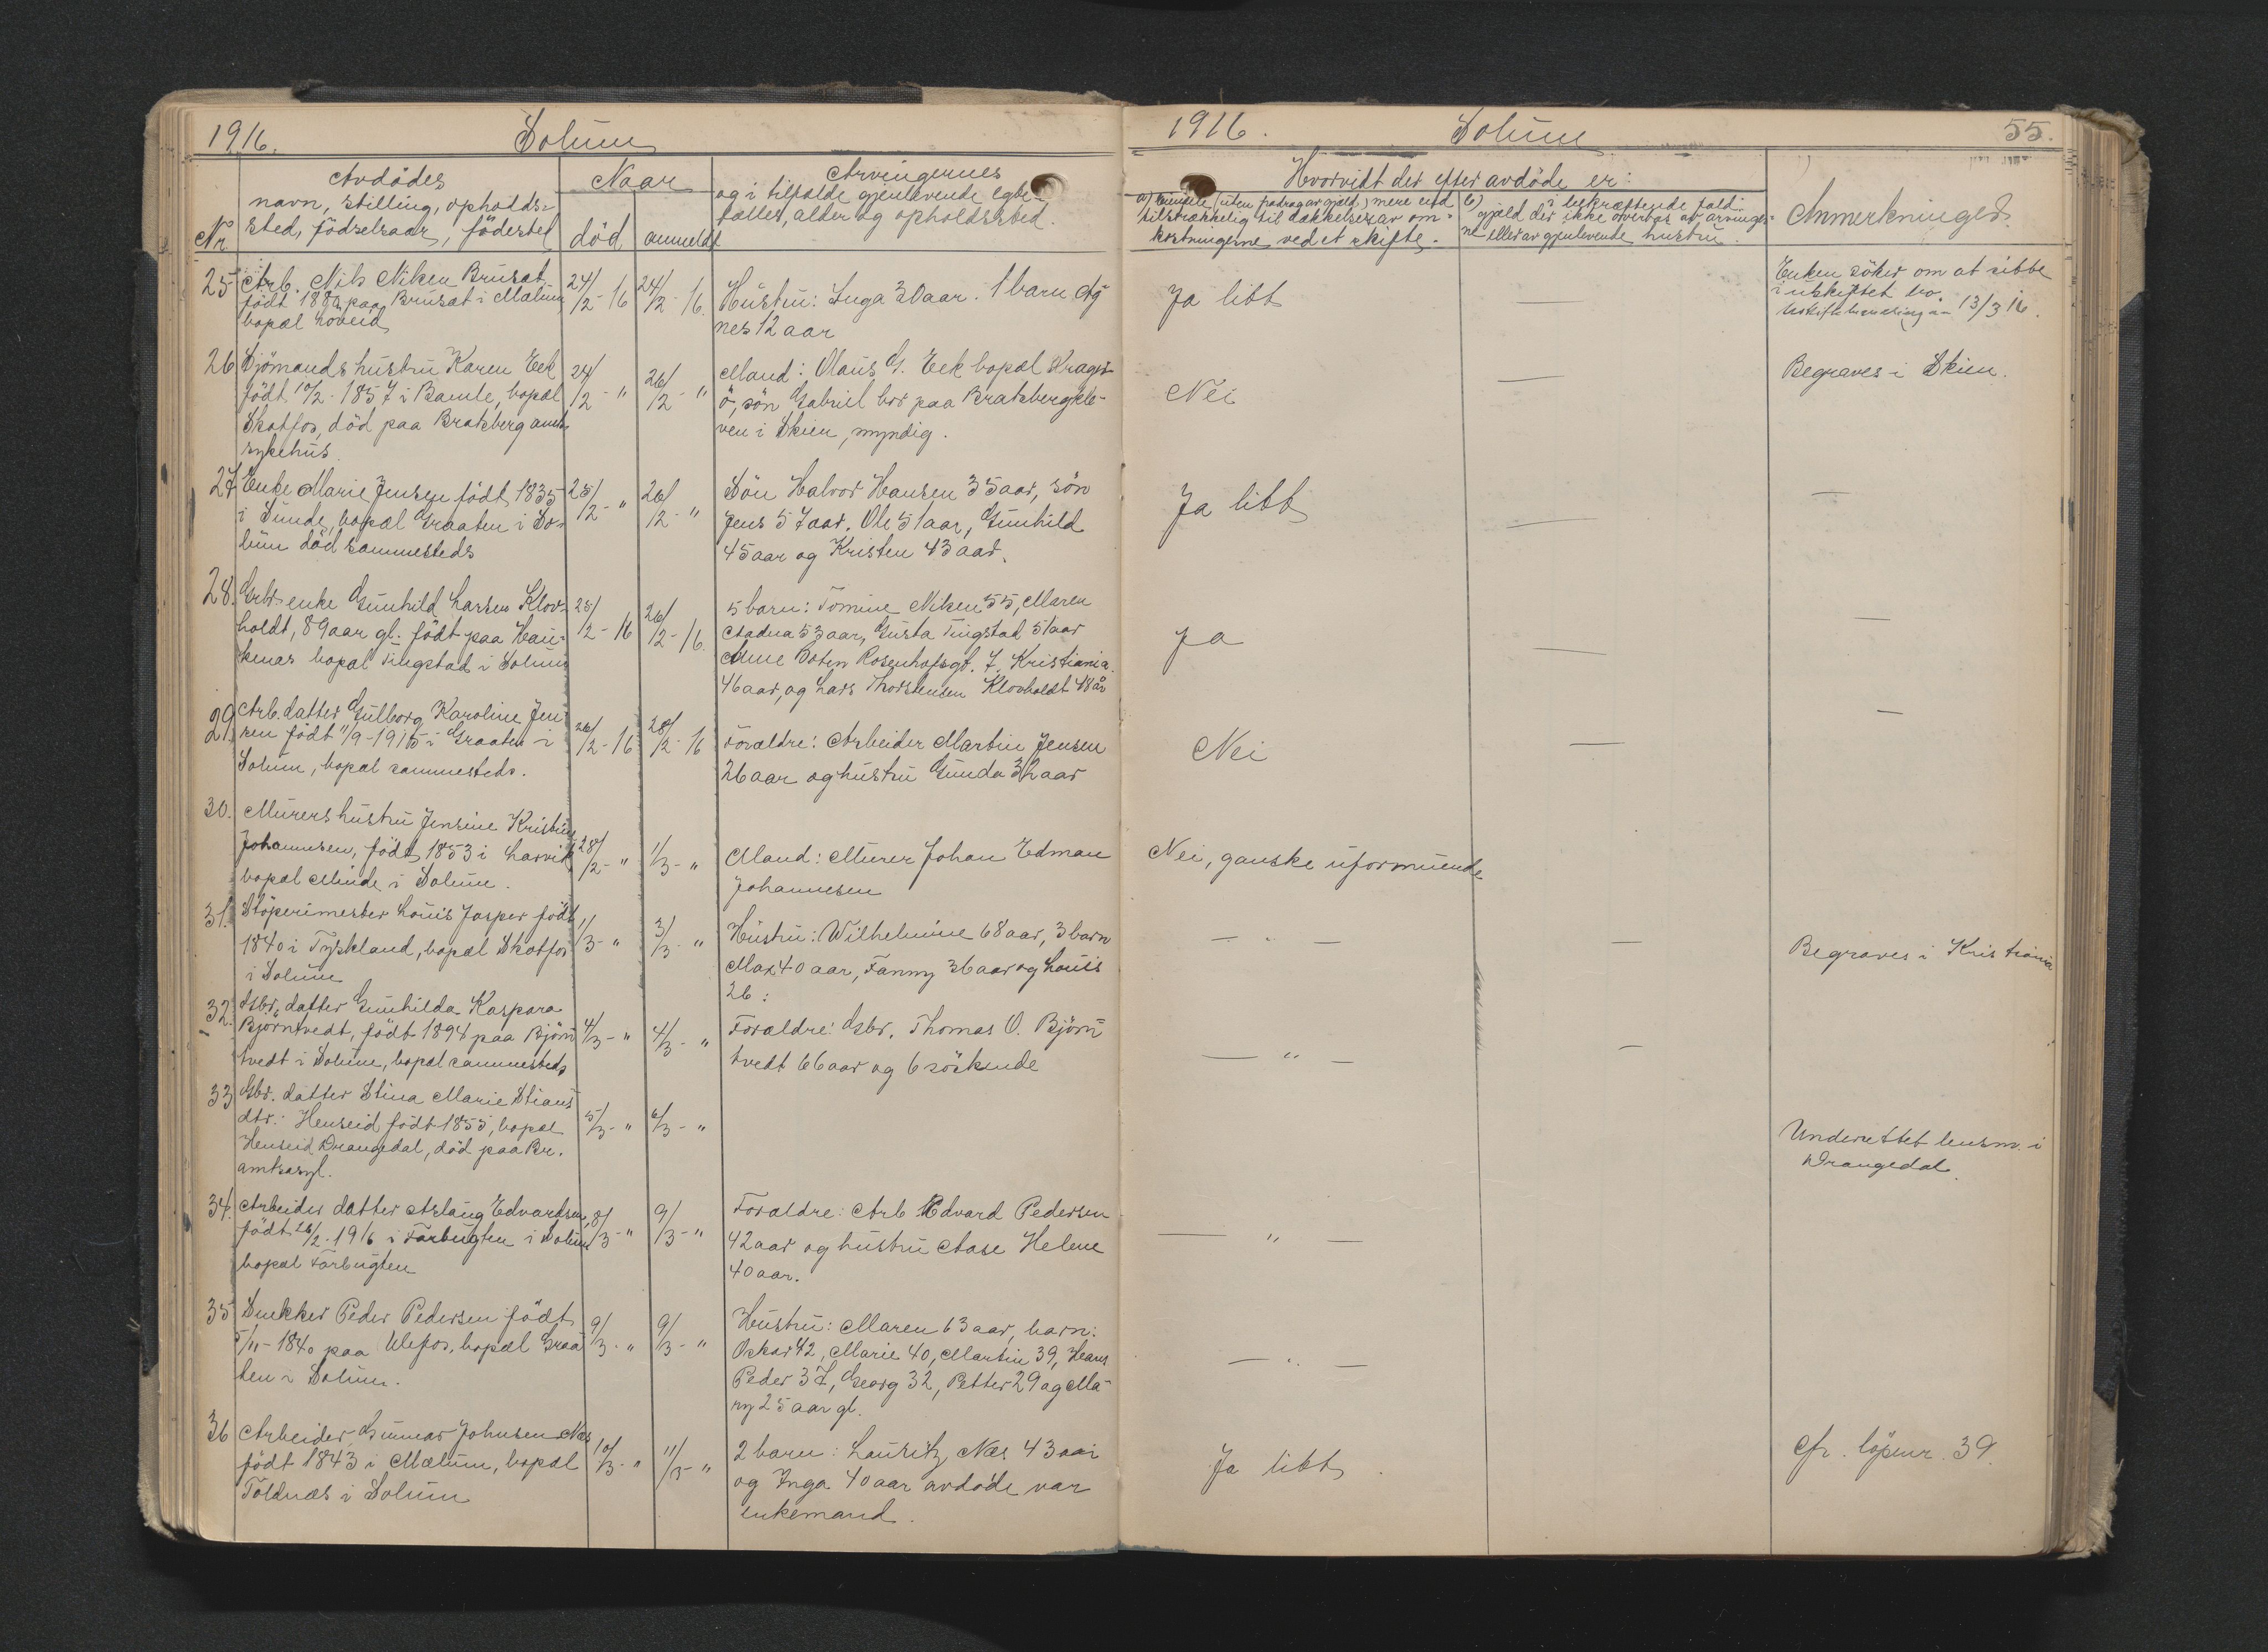 1916. Solum
Avdödes
navn, stilling, opholds-
sted, födselsaar, födested
Nr
Naar
död anmeldt
Arvingernes
og i tilfælde gjenlevende egte-
fælles, alder og opholdssted.
25 Arb. Nils Niken Brusat
födt 188 paa Brusat i Mælum
bopæl
24/2-16 24/2-16.
Hustru: Inga 30 aar. 1 barn Ag
nes 12 aar
26 Sjömands hustru Karen Eek
födt 10/2-1857 i Bamle, bopæl
Skotfos, död paa Bratsberg amts
sykehus.
24/2-" 26/2-"
Mand: Olaus G. Eek bopæl Krager-
ö, sön Gabriel bor paa Bratsbergkle-
ven i Skien, myndig.
27 Enke Marie Jensen födt 1835
i Sunde, bopæl Graaten i So-
lum död sammesteds
25/2-" 26/2-"
Sön Halvor Hansen 35 aar, sön
Jens 57 aar. Ole 51 aar, Gunhild
45 aar og Kristen 43 aar.
28. Gbr. enke Gunhild Larsen Klov-
holdt, 89 aar gl. födt paa Hau-
kenæs bopæl Tingstad i Solum
25/2-16 26/2-16.
5 barn: Tomine Niken 55, Maren
Aadna 53 aar, Gusta Tingstad 51 aar
Anne Boten Rosenhofsgt. 7. Kristiania.
46 aar, og Lars Thorstensen Klovholdt 48 år
29. Arb. datter Gulborg Karoline Jen
sen födt 11/9-1915 i Graaten i
Solum, bopæl sammesteds.
26/2-16 28/2-16
Forældre: Arbeider Martin Jensen
26 aar og hustru Gunda 32 aar
30. Murers hustru Jensine Kristine
Johannesen, födt 1853 i Larvik
bopæl Minde i Solum.
28/2-" 1/3-"
Mand: Murer Johan Edman
Johannesen
31. Stöperimester Louis Jasper födt
1840 i Tyskland, bopæl Skotfos
i Solum
1/3-" 3/3-"
Hustru: Wilhelmine 68 aar, 3 barn
Max 40 aar, Fanny 36 aar og Louis
26:
32. Gbr. datter Gunhilda Kaspara
Björntvedt, födt 1894 paa Björn
tvedt i Solum, bopæl sammesteds
4/3-" 4/3-"
Forældre: Gbr. Thomas O. Björn
tvedt 66 aar og 6 söskende
33 Gbr. datter Stina Marie Stians
dtr. Henseid födt 1855, bopæl
Henseid Drangedal, död paa Br.
amtsasyl.
5/3-" 6/3-"
34. Arbeider datter Aslaug Edvardsen,
födt 26/2-1916 i Farbugten i Solum
bopæl Farbugten
8/3-" 9/3-"
Forældre: Arb Edvard Pedersen
42 aar og hustru Aase Helene
40 aar.
35 Snekker Peder Pedersen födt
5/11-1840 paa Ulefos, bopæl Graa
ten i Solum.
9/3-" 9/3-"
Hustru: Maren 63 aar, barn:
Oskar 42, Marie 40, Martin 39, Hans
Peder 37, Georg 32, Petter 29 og Ma-
ry 25 aar gl.
36 Arbeider Gunnar Johnsen Næs
födt 1843 i Mælum, bopæl
Toldnæs i Solum
10/3-" 11/3-"
2 barn: Lauritz Næs 43 aar
og Inga 40 aar avdöde var
enkemand.
1916. Solum 55.
Hvorvidt der efter avdöde er:
a) (uten fradrag av gjæld) mere end
tilstrækkelig til dækkelse av om-
kostningerne ved et skifte.
b) i bekræftende fald:
gjæld der ikke overtas av arvinger-
ne eller av gjenlevende hustru.
Anmerkninger.
Ja litt —
Enken söker om at sitte
i uskiftet bo.
13/3 16.
Nei —
Begraves i Skien.
Ja litt — —
Ja — —
Nei — —
Nei, ganske uformuende
— " — —
Begraves i Kristiania
— " — —
Underettet lensm. i
Drangedal.
— " —
— " —
Ja litt.
cfr. löpenr. 39.